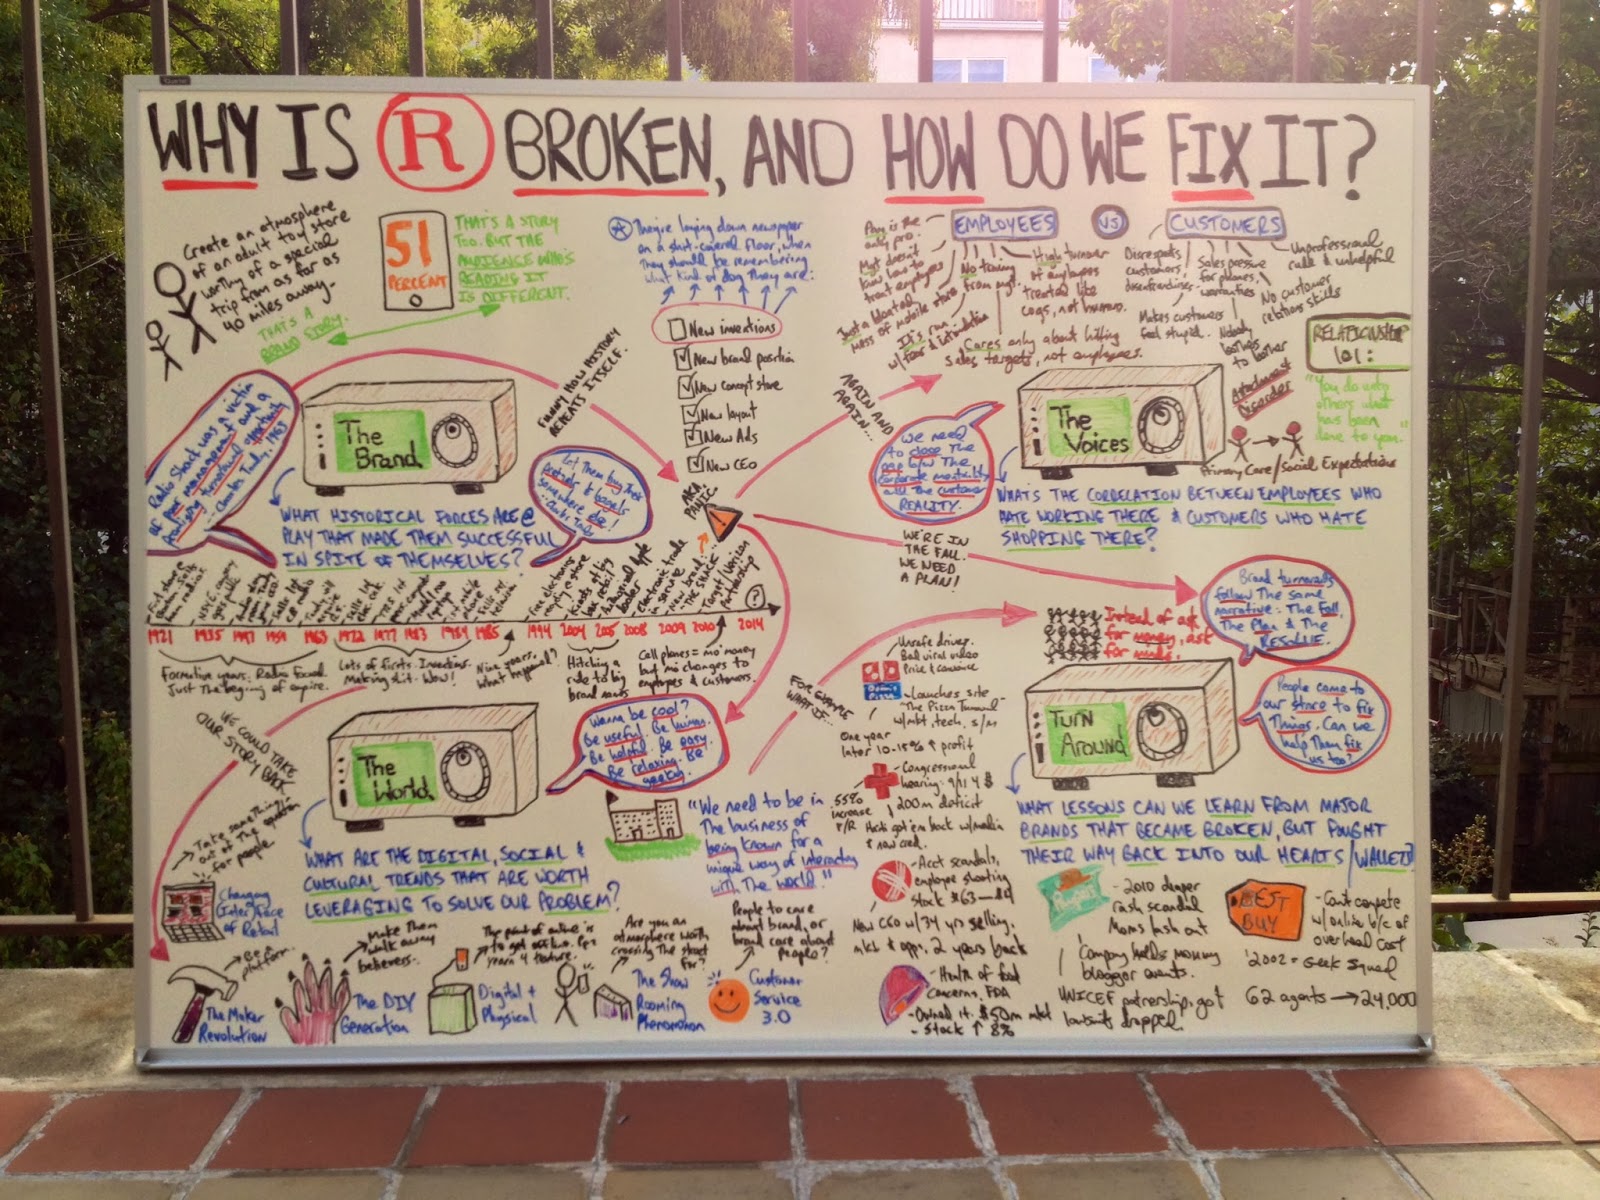 WHY IS R BROKEN, AND HOW DO WE FIX IT?
Create an atmosphere
of an adult toy store
worthy of a special
trip from as far as
40 miles away.
THAT'S A
BRAND STORY.
51
PERCENT
THAT'S A STORY
TOO. BUT THE
AUDIENCE WHO'S
READING IT
IS DIFFERENT.
They're laying down newspaper
on a shit-covered floor, when
They should be remembering
what kind of dog They are:
New inventions
New brand position
New concept store
New layout
New Ads
New CEO
FUNNY HOW HISTORY
REPEATS ITSELF.
AKA.
PANIC.
!
Radio Shack was a victim
of poor management and a
turnaround opportunity
1963
The
Brand
WHAT HISTORICAL FORCES ARE @
PLAY THAT MADE THEM SUCCESSFUL
IN SPITE OF THEMSELVES?
Let Them buy Their
somewhere else!
EMPLOYEES
VS
CUSTOMERS
Pay is the
only pro.
Mgt doesn't
know how to
treat employees
Just a bloated
mass of mobile store
It's run
w/fear & intimidation
No training
from mgt.
High turnover
of employees
treated like
cogs, not humans.
Cares only about hitting
sales targets, not employees.
Disrespects
customers.
Makes customers
feel stupid.
Sales pressure
for phones,
warranties
Nobody
to bother
Unprofessional
rude & unhelpful
No customer
relations skills
Attachment
Disorder
RELATIONSHIP
101:
"You do unto
others what
has been
done to you."
Primary Care/Social Expectations
AGAIN AND
AGAIN...
We need
to close The
gap b/w The
corporate mentality
and The customer
REALITY.
The
Voices
WHATS THE CORRELATION BETWEEN EMPLOYEES WHO
HATE WORKING THERE & CUSTOMERS WHO HATE
SHOPPING THERE?
WE'RE IN
THE FALL.
WE NEED
A PLAN!
Brand turnarounds
follow The same
narrative: The Fall
The Plan & The
RESOLVE.
Target/Verizon
Partnership
?
1921
1935
1963
1972
1977
1983
1985
1994
2004
2005
2008
2009
2010
2014
Formative years. Radio Found.
Just The beginning of empire.
Lots of firsts. Inventions.
Making shit. Wow!
Nine years.
What happened?
Hitching a
ride to big
brand names
Cell phones = mo' money
but no changes to
employees & customers.
WE COULD TAKE
OUR STORY BACK
The
World
Wanna be cool?
Be useful. Be human.
Be helpful. Be easy.
Be relaxing. Be
geeky.
WHAT ARE THE DIGITAL, SOCIAL &
CULTURAL TRENDS THAT ARE WORTH
LEVERAGING TO SOLVE OUR PROBLEM?
"We need to be in
The business of
being known for a
unique way of interacting
with The world."
FOR EXAMPLE
WHAT IF...
Instead of ask
for money, ask
for minds.
Turn
Around
People come to
our store to fix
Things. Can we
help Them fix
us too?
WHAT LESSONS CAN WE LEARN FROM MAJOR
BRANDS THAT BECAME BROKEN, BUT FOUGHT
THEIR WAY BACK INTO OUR HEARTS/WALLETS?
Unsafe driver.
Bad viral video
Domino's
Pizza
-Launches site
"The Pizza Turnaround
w/mkt, tech, s/m
One year
later 10-15% ↑ profit
-Congressional
hearing: 9/11 $
200m deficit
55%
increase
-Acct scandals,
employee shooting
stock $63-$4
New CEO w/34 yrs selling,
mkt & opps. 2 years back
-Health of food
concerns, FDA
-Owned it. $50m mkt
-Stock ↑ 8%
Pampers
-2010 diaper
rash scandal
Moms lash out
Company holds mommy
blogger events.
UNICEF partnership, got
lawsuit dropped
BEST
BUY
-Can't compete
w/online b/c of
overhead cost
'2002 = Geek Squad
62 agents → 24,000
Take something
out of The equation
for people.
Changing
Interface
of Retail
Be a
platform
The Maker
Revolution
Make Them
walk away
believers.
The DIY
Generation
Digital +
Physical
Are you an
atmosphere worth
crossing The street
for?
The Show
Rooming
Phenomenon
People to care
about brand, or
brand care about
people?
Customer
Service
3.0